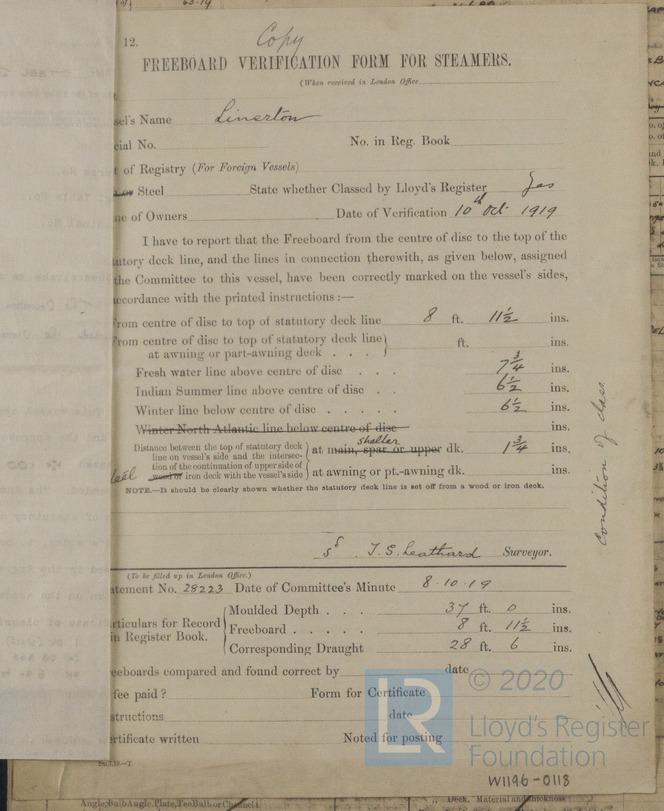 12.
Copy
FREEBOARD VERIFICATION FORM FOR STEAMERS.
(When received in London Office
sel's Name Linerton
cial No. No. in Reg. Book
t of Registry (For Foreign Vessels)
or Steel State whether Classed by Lloyd's Register Yes
me of Owners Date of Verification 10th Oct. 1919
I have to report that the Freeboard from the centre of disc to the top of the
tutory deck line, and the lines in connection therewith, as given below, assigned
the Committee to this vessel, have been correctly marked on the vessel's sides,
accordance with the printed instructions :—
From centre of disc to top of statutory deck line 8 ft. 11½ ins.
From centre of disc to top of statutory deck line
at awning or part-awning deck . . . ft. ins.
Fresh water line above centre of disc . . . 7¾ ins.
Indian Summer line above centre of disc . . 6½ ins.
Winter line below centre of disc . . . . . 6½ ins.
Winter North Atlantic line below centre of disc ins.
Distance between the top of statutory deck
line on vessel's side and the intersec-
shelter
at main, spar or upper dk. 1¾ ins.
tion of the continuation of upper side of
wood or iron deck with the vessel's side
at awning or pt.-awning dk. ins.
NOTE.—It should be clearly shown whether the statutory deck line is set off from a wood or iron deck.
Condition of class
J. S. Leathard Surveyor.
(To be filled up in London Office.)
atement No. 28223 Date of Committee's Minute 8.10.19
rticulars for Record
in Register Book.
Moulded Depth . . . 37 ft. 0 ins.
Freeboard . . . . . 8 ft. 11½ ins.
Corresponding Draught 28 ft. 6 ins.
eeboards compared and found correct by date
fee paid ? Form for Certificate
structions date
rtificate written Noted for posting
LR
© 2020
Lloyd's Register
Foundation
W1196-0118
Angle, Bulb Angle, Plate, Tee Bulb or Channel
Deck. Material and thickness